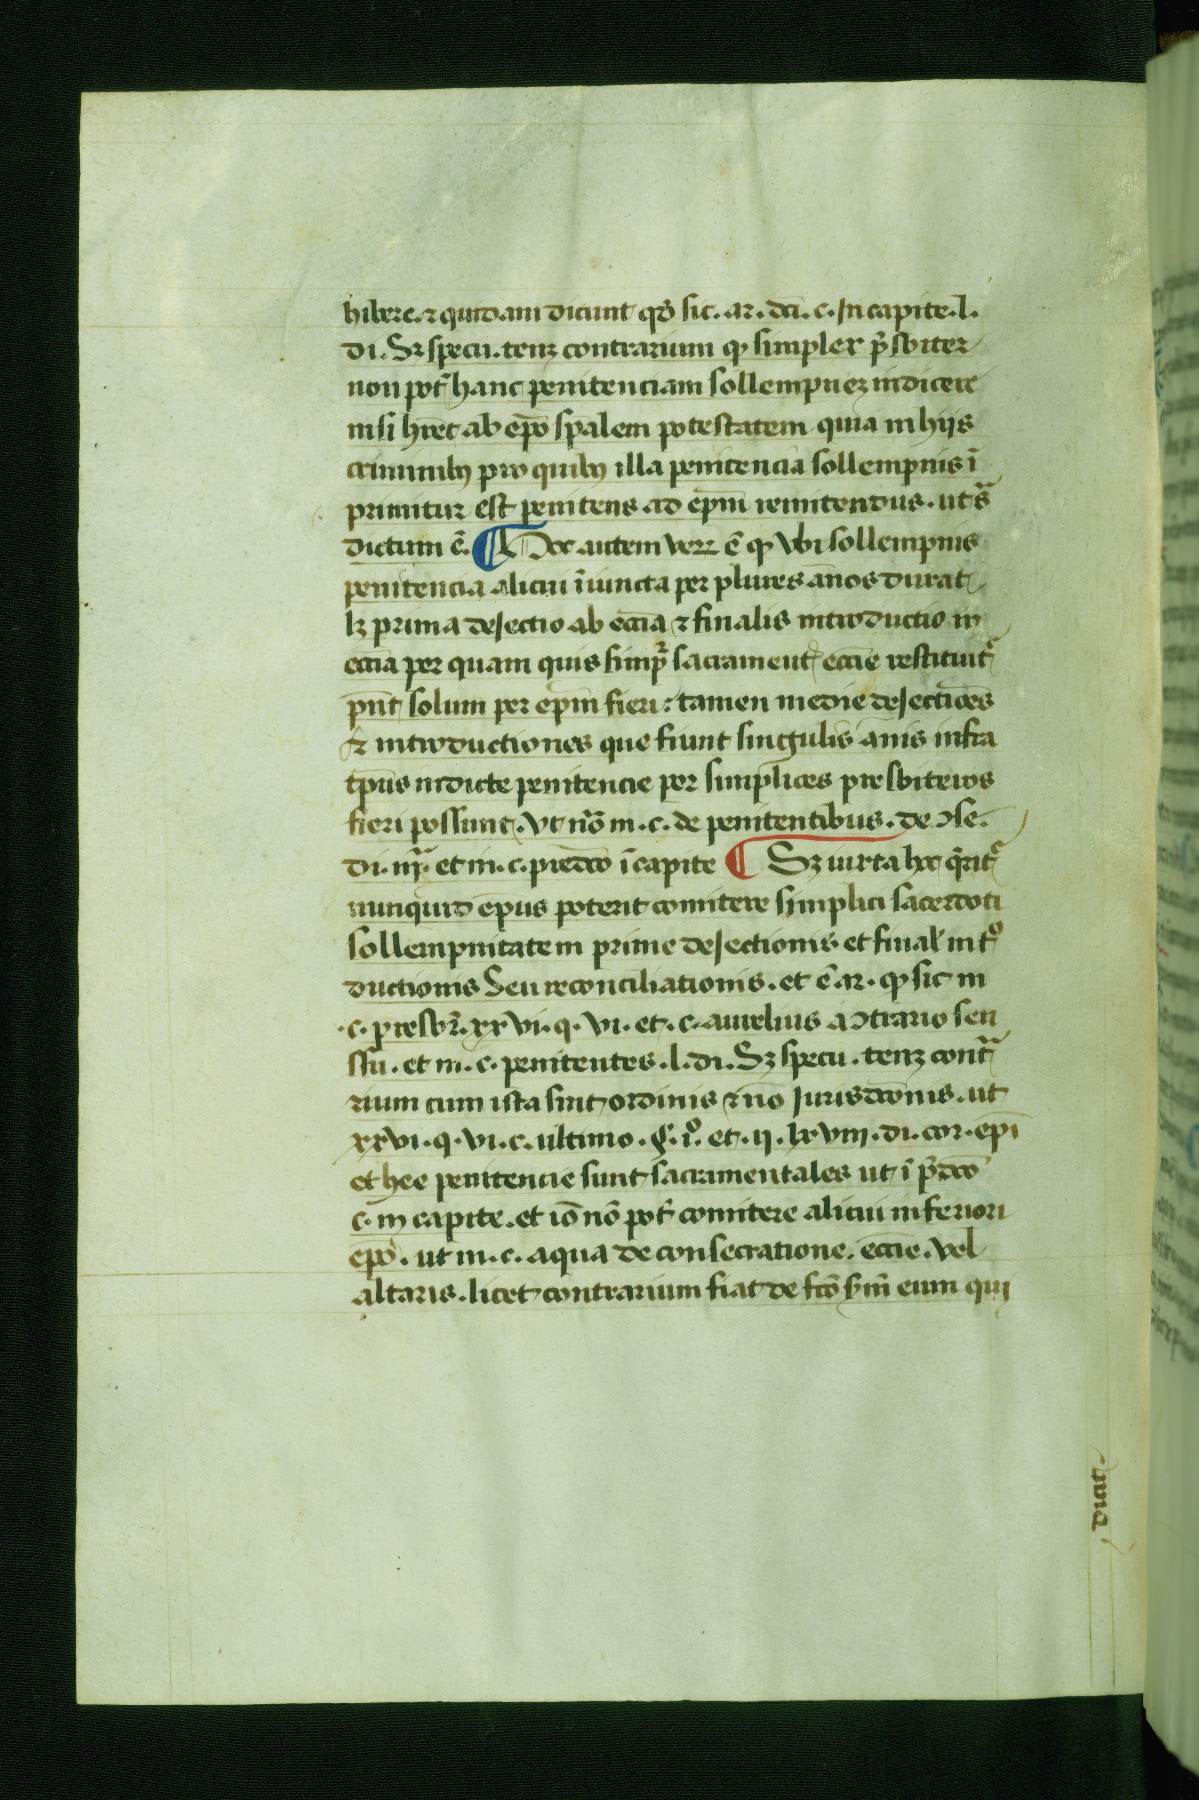 hibere. ⁊ quidam dicunt qd̛ sic. ar. dc̄i. c. In capite. l.
di. Sꝫ specu. tenꝫ contrarium qͥ simplex p̄sbiter
non pot̄ hanc penitenciam sollempneꝫ indicere
nisi hret̄ ab ep̄o sp̄alem potestatem quia in hijs
criminibꝫ pro quibꝫ illa penitencia sollempnis ī
primitur est penitens ad ep̄m remitendus. ut sᵃ
dictum ē. ¶ Hoc autem verꝫ ē ꝙ vbi sollempnis
penitencia alicui īiuncta per plures annos durat
lꝫ prima deiectio ab eccīa ⁊ finalis introductio in
eccīa per quam quis simpr̄ sacrament̄ eccīe restituit᷑
pn̄t solum per ep̄m fieri: tamen medie deiectiōes
⁊ introductiones que fiunt singulis annis infra
tp̄us indicte penitencie per simplices presbiteros
fieri possunt. Vt nō in. c. de penitentibus. de ꝯse.
di. iijᵃ. et in. c. predc̄o ī capite ¶ Sꝫ iuxta hoc q̄rit᷑
nunquid ep̄us poterit comitere simplici sacerdoti
sollempnitatem prime deiectionis et final̄ intᵒ
ductionis Seu reconciliationis. et ē ar. ꝙ sic in
.c. presbr̄. xxvi. q. vi. et. c. aurelius a ꝯtrario sen
ssu. et in. c. penitentes. l. di. Sꝫ specu. tenꝫ contᵃ
rium cum ista sint ordinis ⁊ nō Jurisdc̄onis. ut
xxvi. q. vi. c. ultimo. §. iᵒ. et. ij. lxviii. di. cor. ep̄i
et hee penitencie sunt sacramentales ut ī p̄dc̄o
c. in capite. et iō nō pot̄ comitere alicui inferiori
ep̄o. ut in. c. aqua de consecratione. eccīe. vel
altaris. licet contrarium fiat de fc̄o sm̄ eum qui
dicit